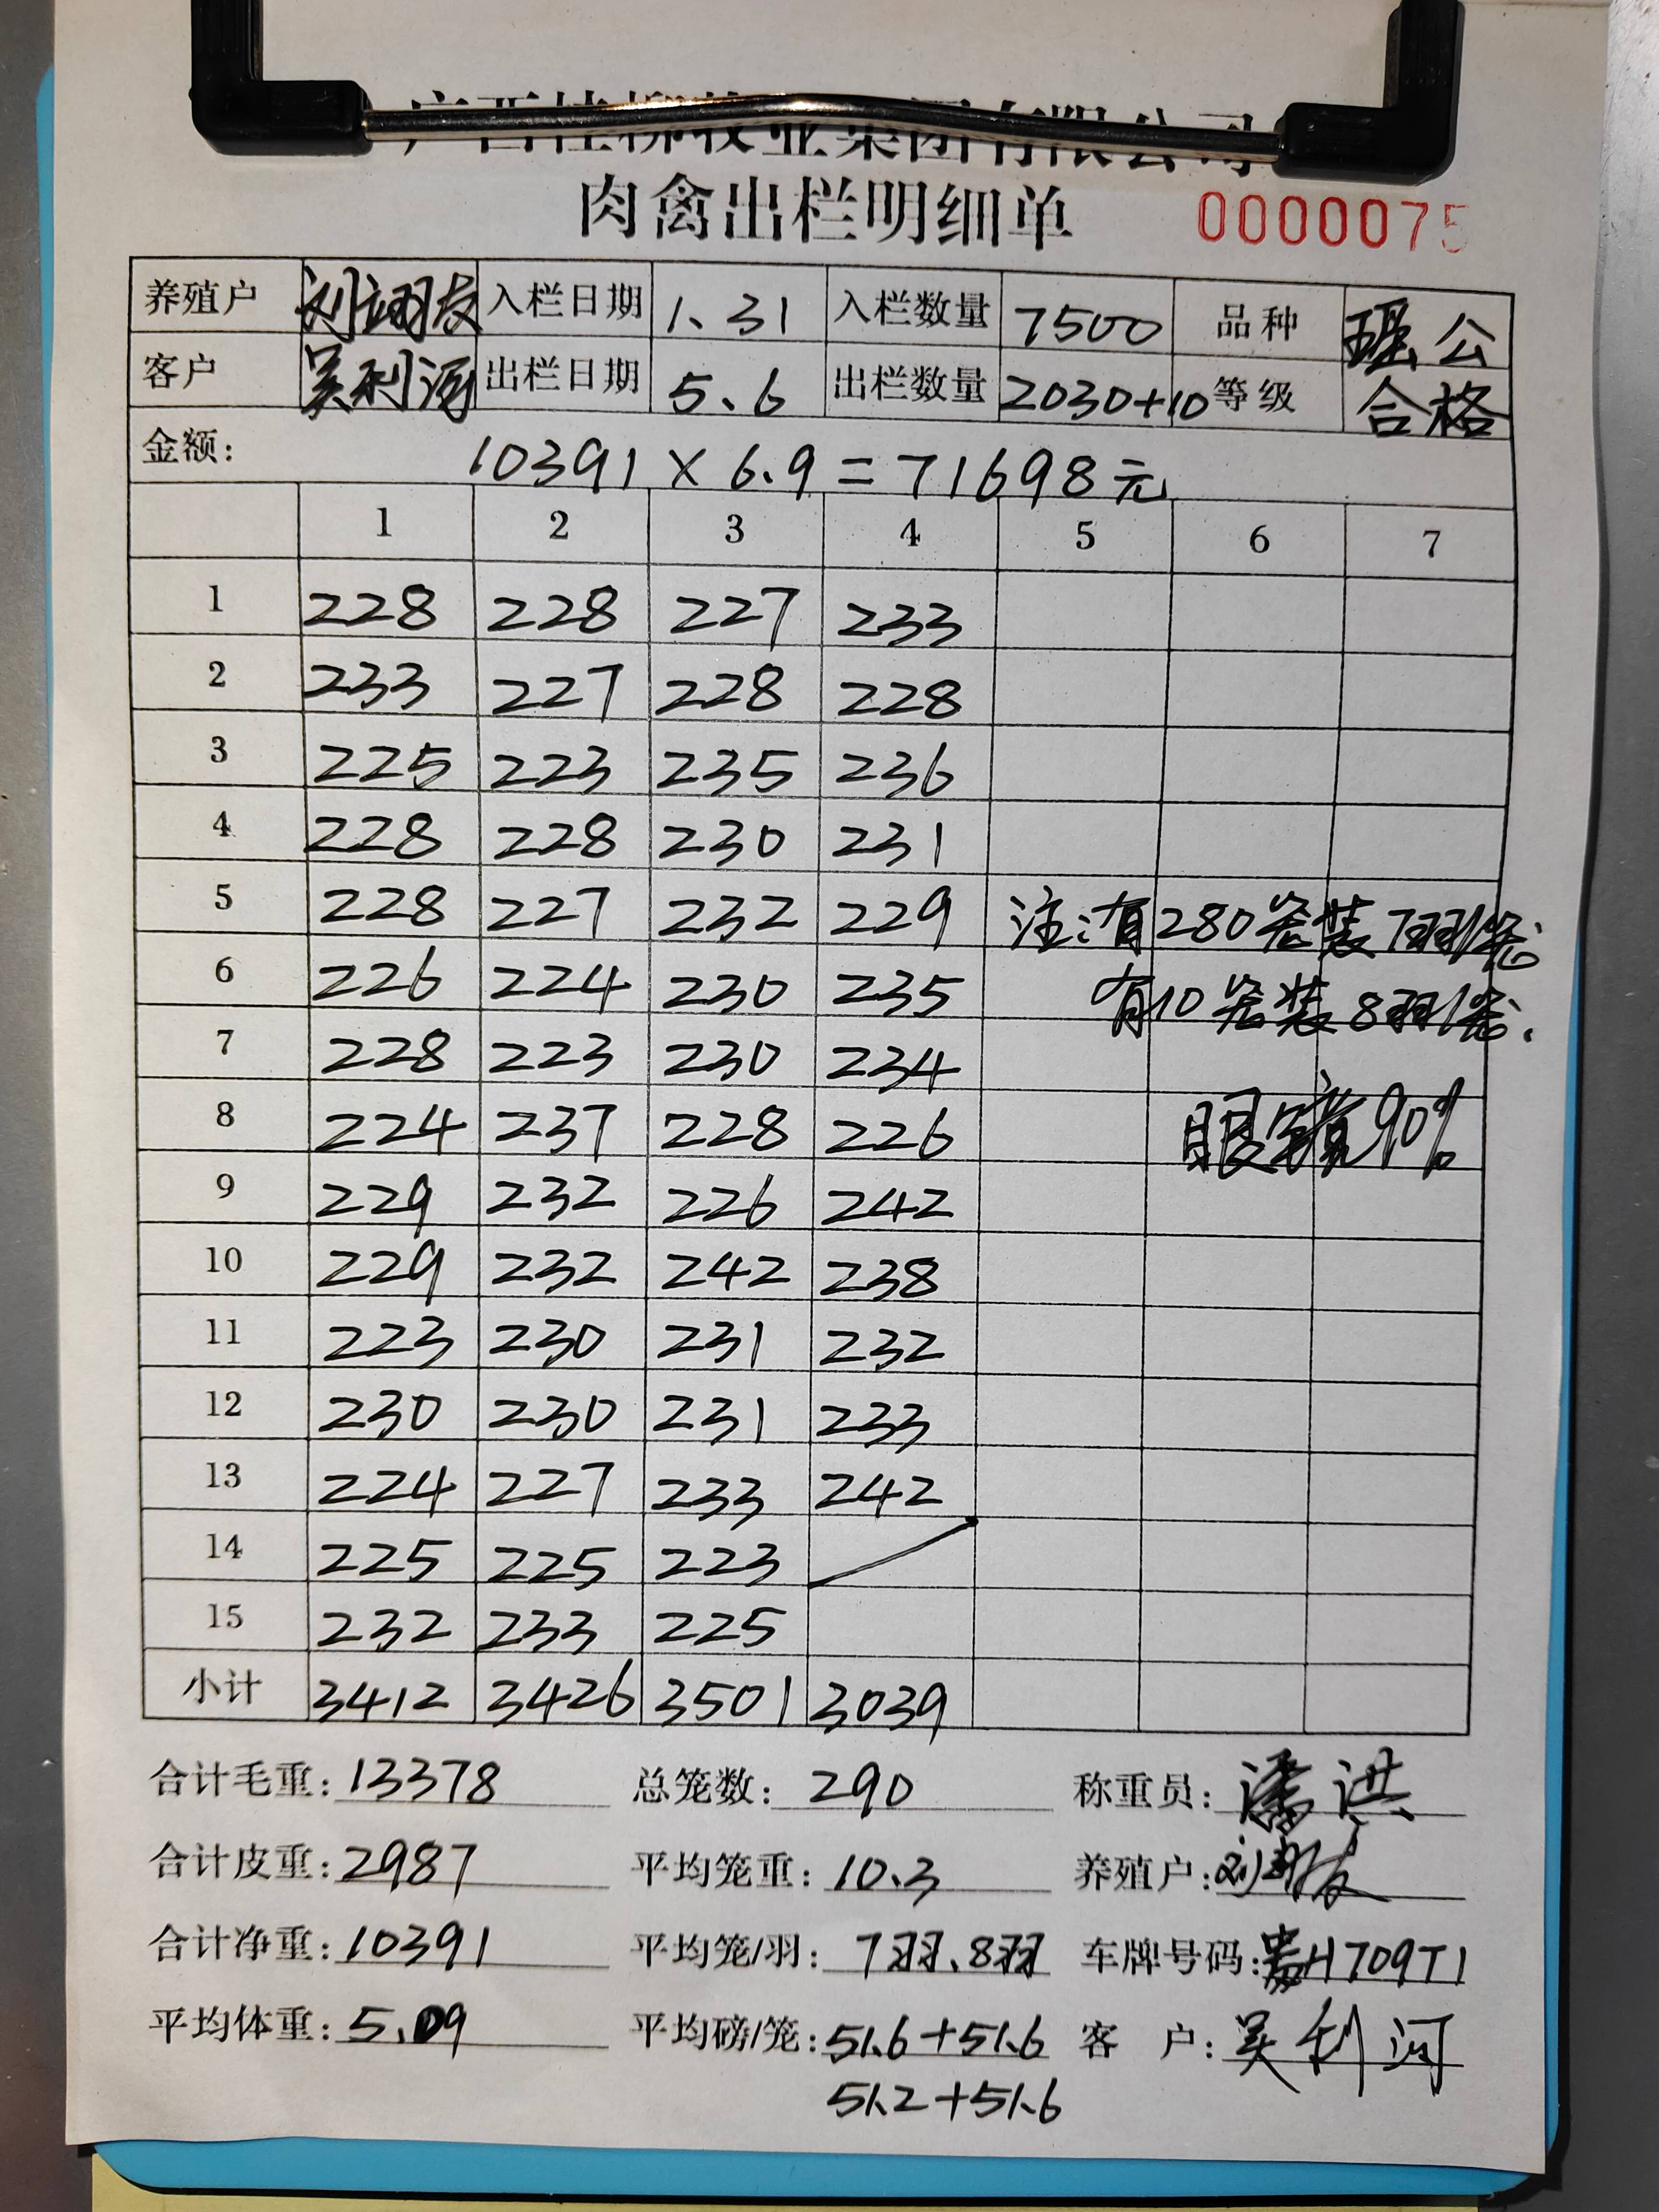 广西桂柳牧业集团有限公司
肉禽出栏明细单 0000075
养殖户 刘翊友 入栏日期 1、31 入栏数量 7500 品种 瑶公
客户 吴利河 出栏日期 5、6 出栏数量 2030+10 等级 合格
金额: 10391 × 6.9 = 71698元
1 2 3 4 5 6 7
1 228 228 227 233
2 233 227 228 228
3 225 223 235 236
4 228 228 230 231
5 228 227 232 229 注:有280笼装7羽/笼
6 226 224 230 235 有10笼装8羽/笼.
7 228 223 230 234
8 224 237 228 226 眼 90%
9 229 232 226 242
10 229 232 242 238
11 223 230 231 232
12 230 230 231 233
13 224 227 233 242
14 225 225 223
15 232 233 225
小计 3412 3426 3501 3039
合计毛重: 13378 总笼数: 290 称重员: 潘洪
合计皮重: 2987 平均笼重: 10.3 养殖户: 刘翊友
合计净重: 10391 平均笼/羽: 7羽、8羽 车牌号码: 贵H709T1
平均体重: 5.09 平均磅/笼: 51.6+51.6 客 户: 吴利河
51.2+51.6